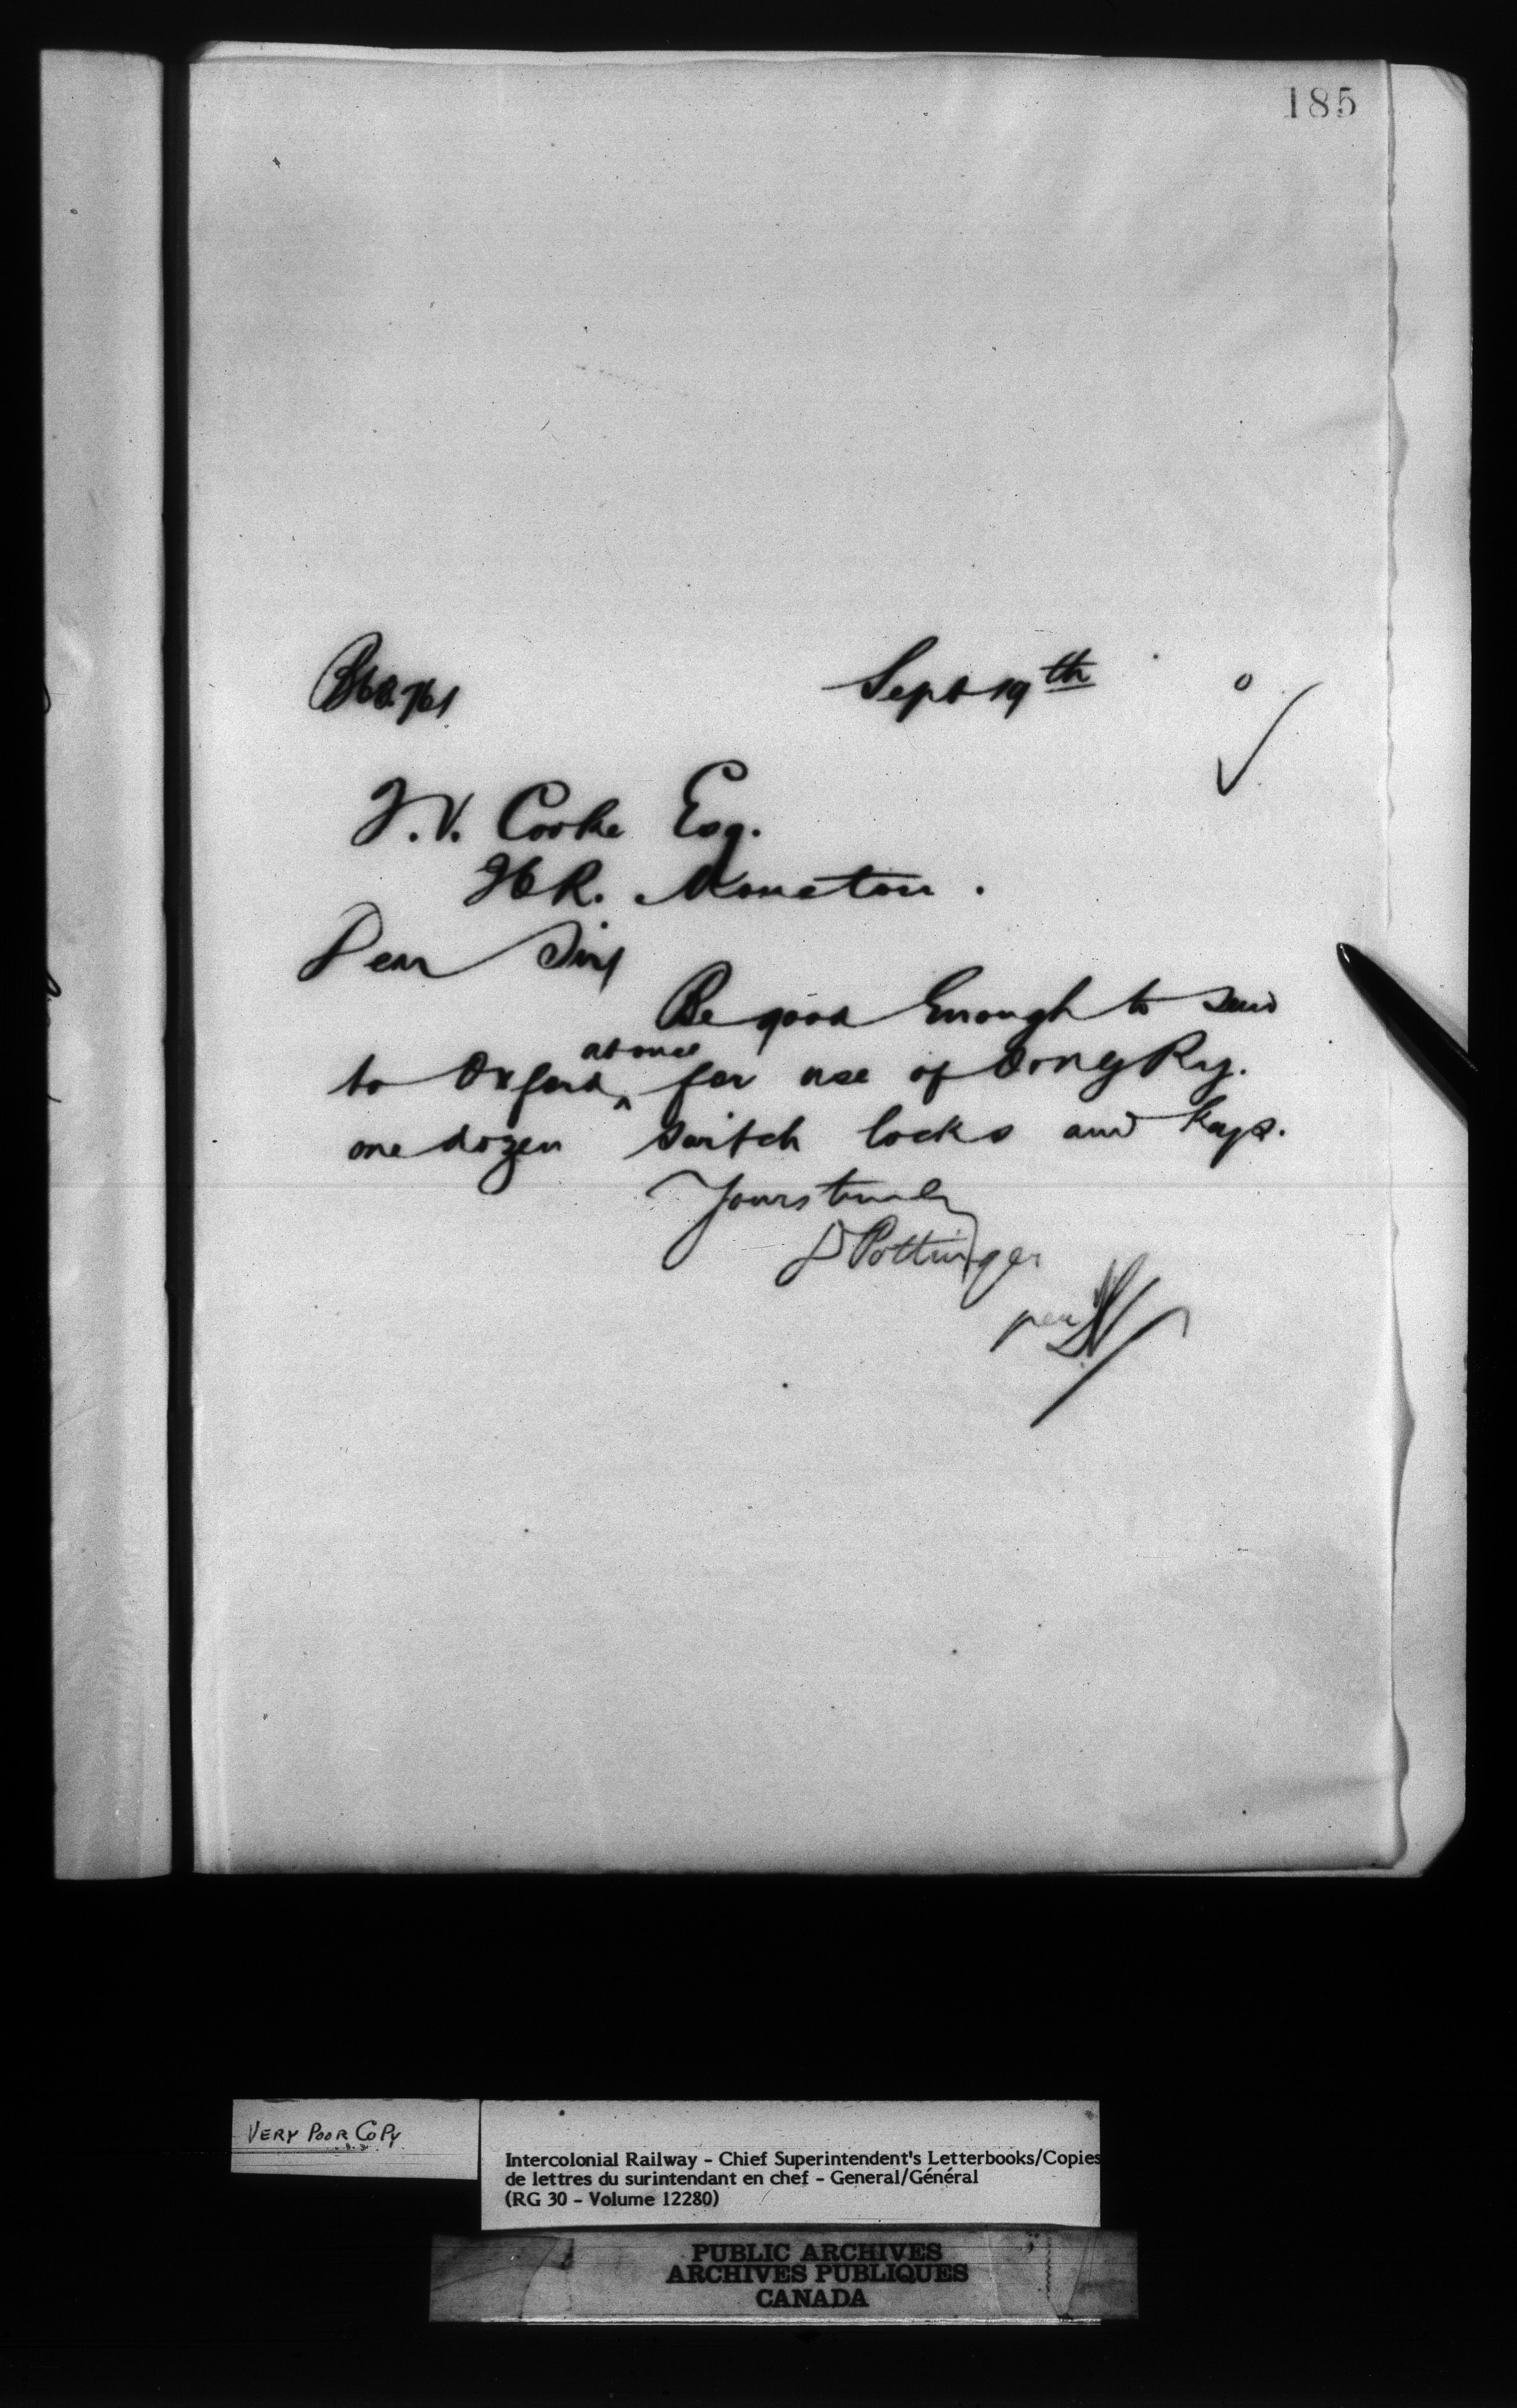 185
Sept 19th
T.V. Cooke Esq.
Moncton.
Dear Sir
Be good Enough to send
to Oxford ^at once for use of O & N G Ry.
one dozen switch locks and keys.
Yours truly
D Pottinger
per
VERY POOR COPY
Intercolonial Railway - Chief Superintendent's Letterbooks/Copies
de lettres du surintendant en chef - General/Général
(RG 30 - Volume 12280)
PUBLIC ARCHIVES
ARCHIVES PUBLIQUES
CANADA